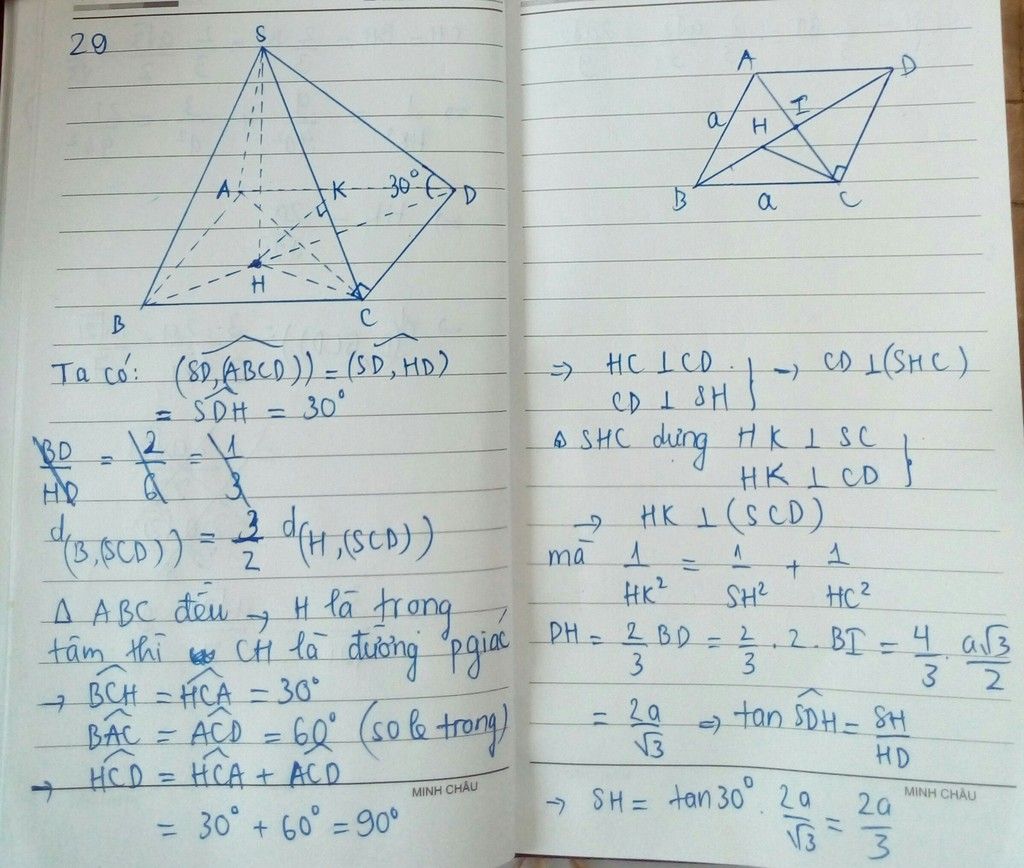 29
S
A
K
30°
D
H
B
C
Ta có: (SD,(ABCD)) = (SD,HD)
= SDH = 30°
BD/HD = 2/6 = 1/3
d(B,(SCD)) = 3/2 d(H,(SCD))
Δ ABC đều → H là trọng
tâm thì CH là đường pgiác
→ BCH = HCA = 30°
BAC = ACD = 60° (so le trong)
→ HCD = HCA + ACD
= 30° + 60° = 90°
MINH CHÂU
A
D
I
a
H
B
a
C
⇒ HC ⊥ CD
CD ⊥ SH } → CD ⊥ (SHC)
Δ SHC dựng HK ⊥ SC
HK ⊥ CD }
→ HK ⊥ (SCD)
mà 1/HK² = 1/SH² + 1/HC²
DH = 2/3 BD = 2/3 . 2 . BI = 4/3 . a√3/2
= 2a/√3 ⇒ tan SDH = SH/HD
→ SH = tan30° . 2a/√3 = 2a/3
MINH CHÂU